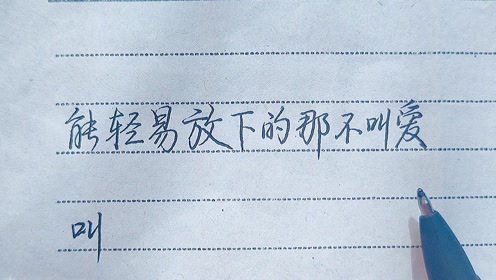 能轻易放下的那不叫爱
叫